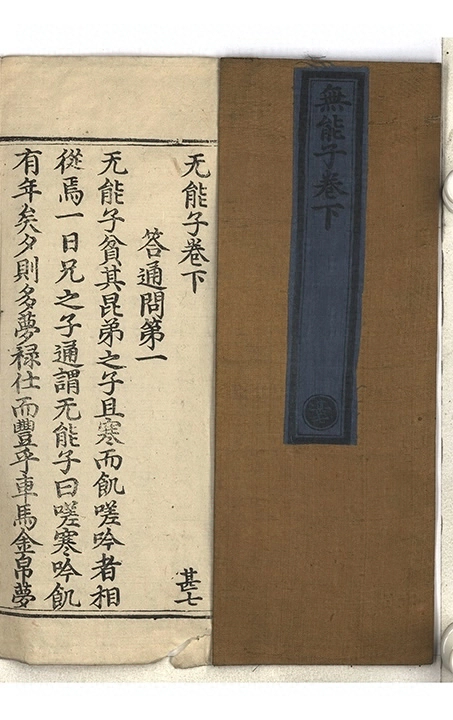 無能子卷下
无能子卷下
甚七
答通問第一
无能子貧其昆弟之子且寒而飢嗟吟者相
從焉一日兄之子通謂无能子曰嗟寒吟飢
有年矣夕則多夢祿仕而豐乎車馬金帛夢